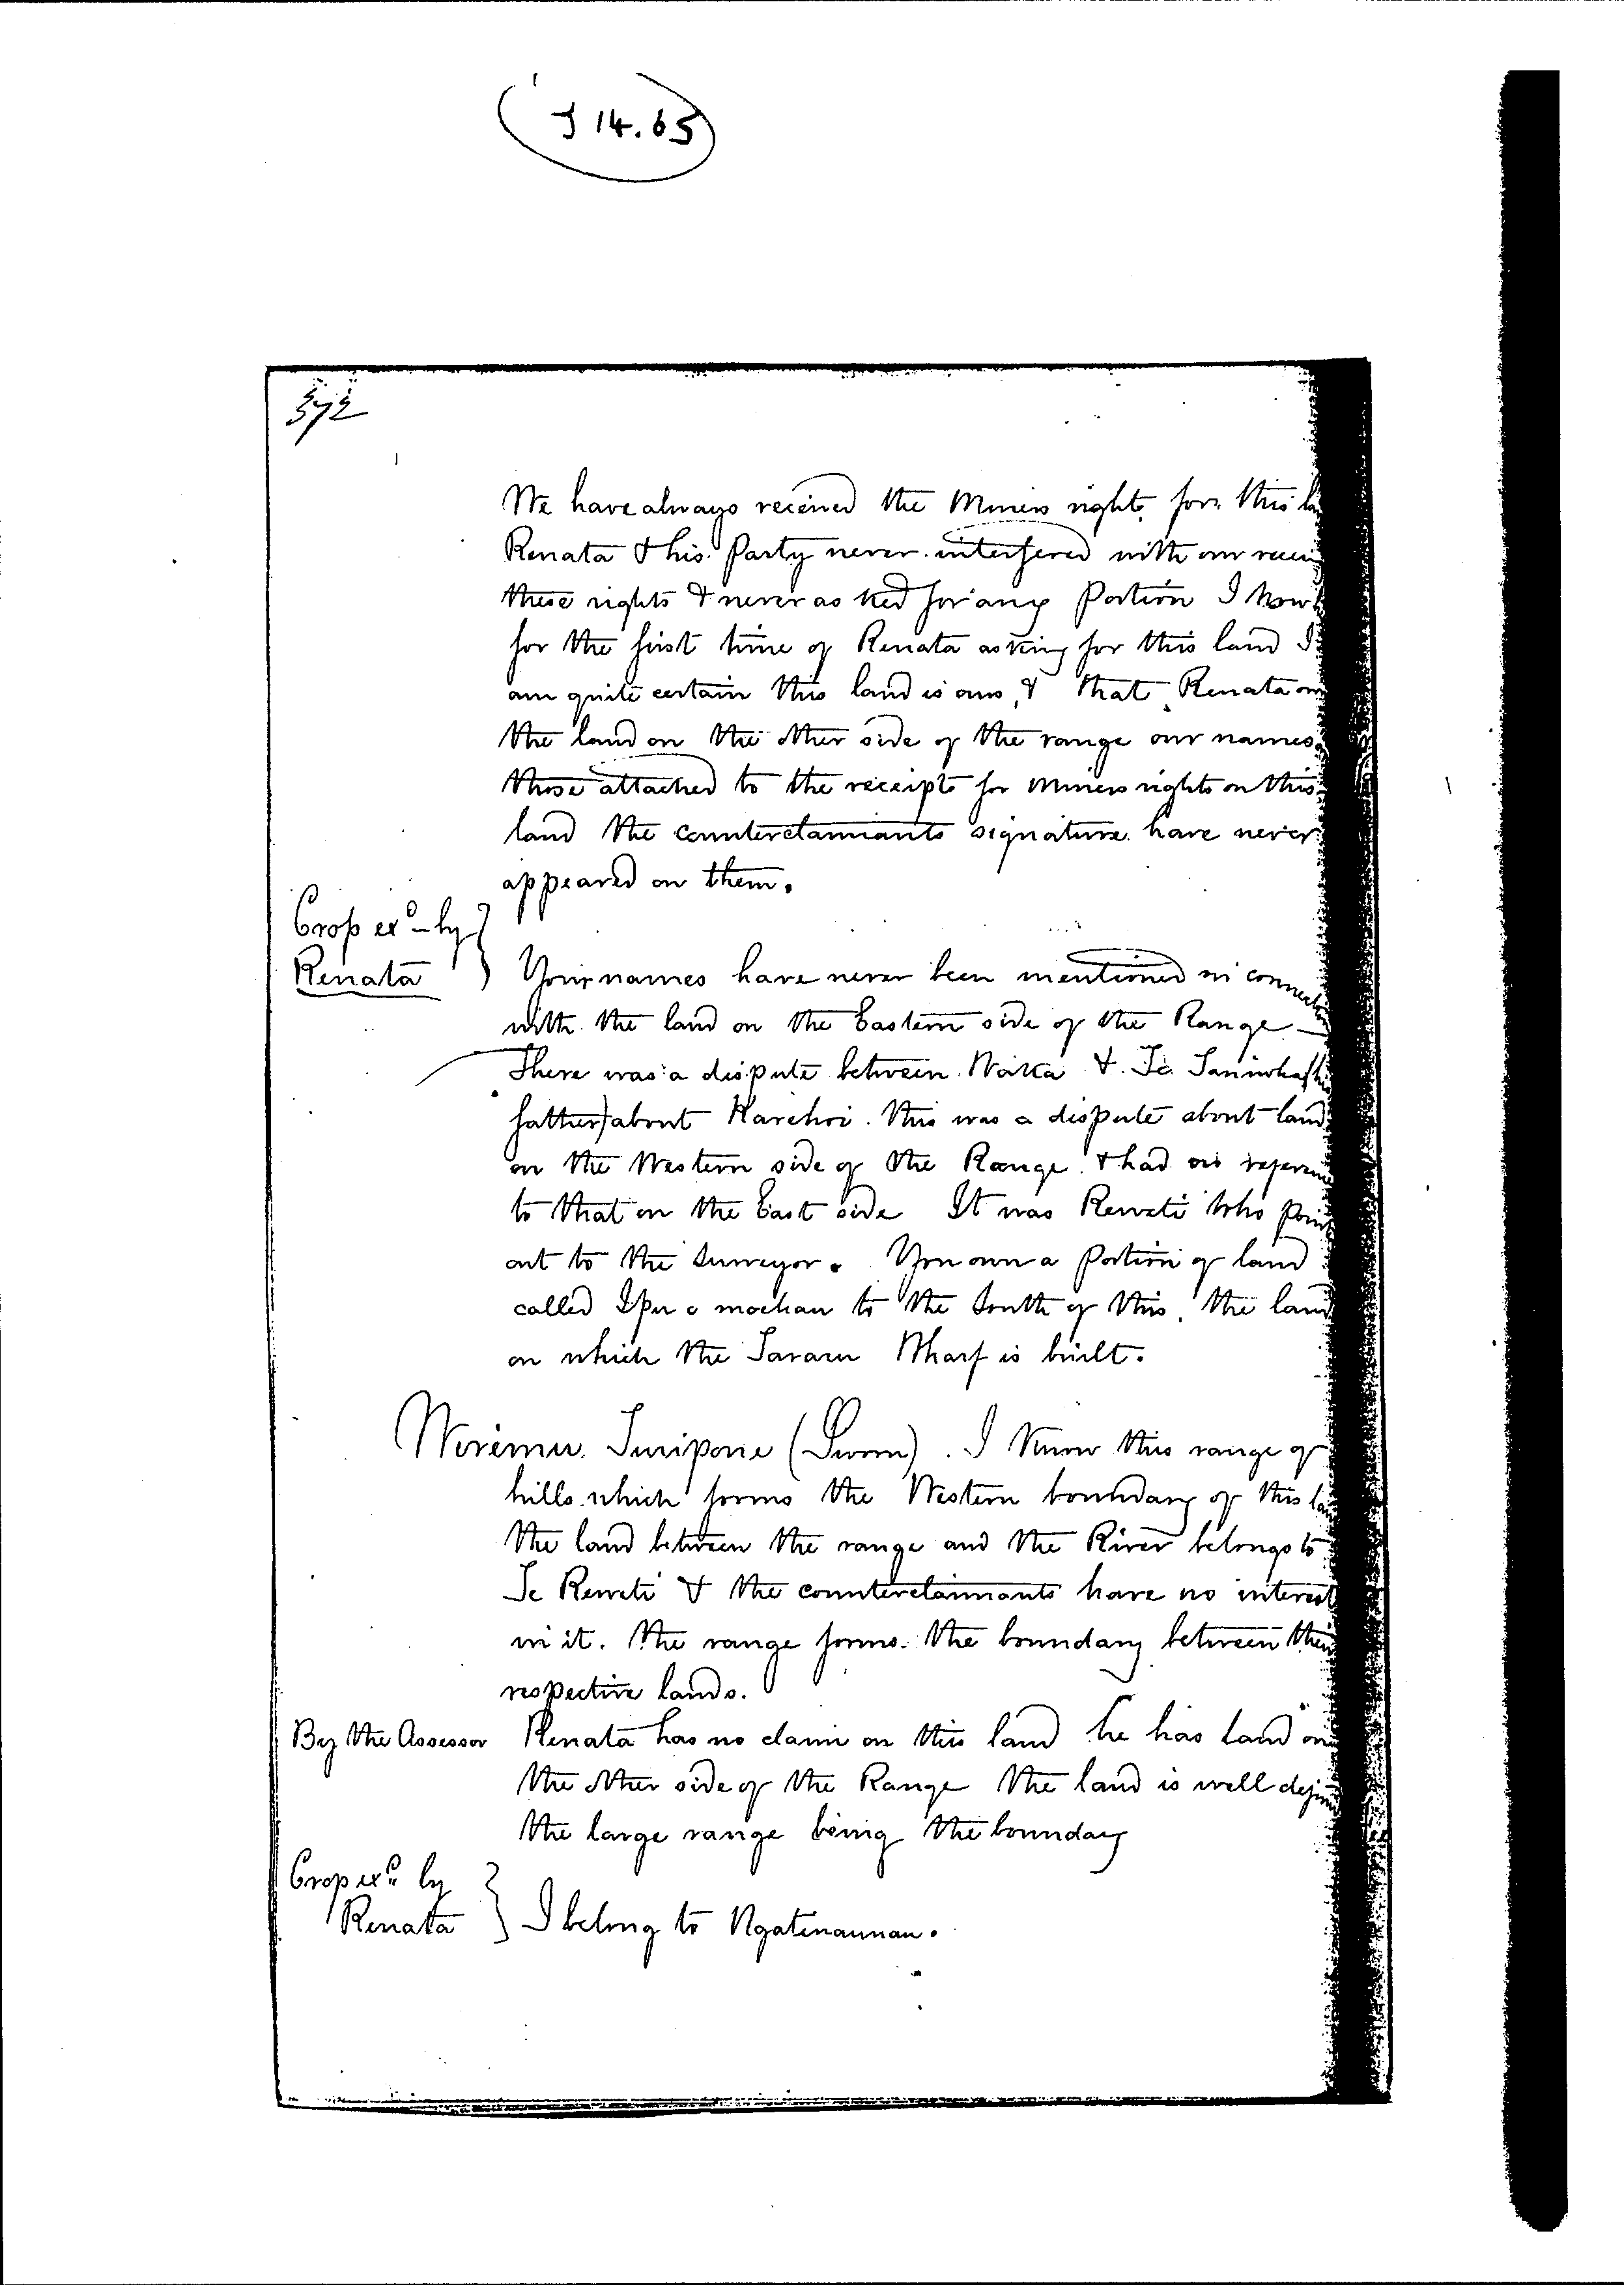 J 14.65
372
We have always received the Miners rights for this
Renata & his Party never interfered with our
these rights & never asked for any Portion I now
for the first time of Renata asking for this land I
am quite certain this land is ours, & that Renata
the land on the other side of the range our names
those attached to the receipts for Miners rights on this
land the counterclaimants signature have never
appeared on them.
Cross exd by
Renata } Your names have never been mentioned in connection
with the land on the Eastern side of the Range
There was a dispute between Waka & Te
father) about . This was a dispute about land
on the Western side of the Range & had no
to that on the East side It was Reweti who
out to the Surveyor. You own a Portion of land
called Ipu o moehau to the South of this, the land
on which the Tararu Wharf is built.
Wiremu Turipona (Sworn). I know this range of
hills which forms the Western boundary of this
the land between the range and the River belongs to
Te Reweti & the counterclaimants have no interest
in it. The range forms the boundary between their
respective lands.
By the Assessor Renata has no claim on this land he has land on
the other side of the Range the land is well
the large range being the boundary
Cross exd by
Renata } I belong to Ngatinaunau.